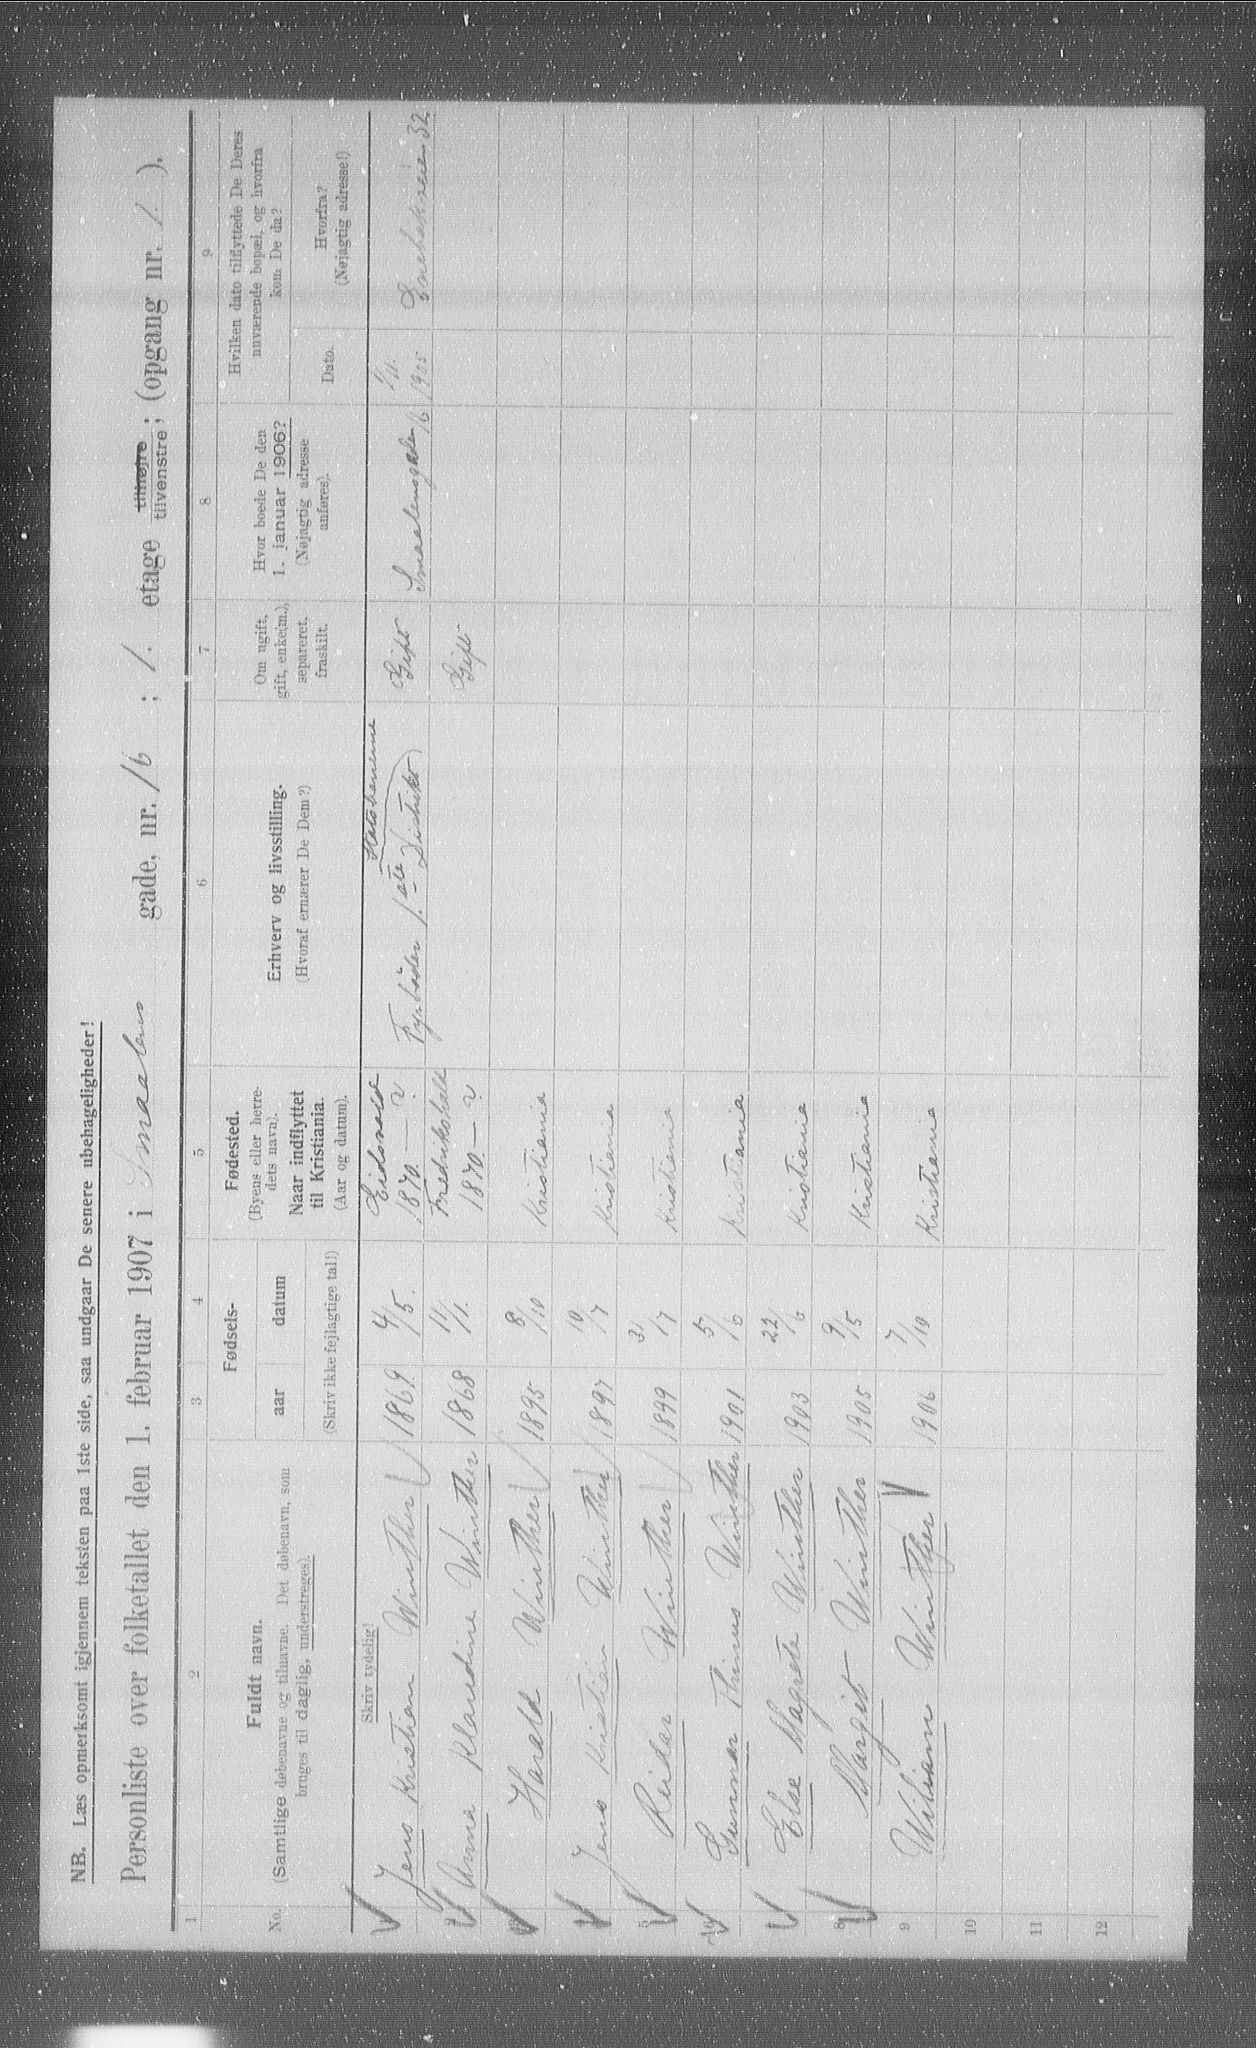 NB. Læs opmerksomt igjennem teksten paa 1ste side, saa undgaar De senere ubehageligheder!
Personliste over folketallet den 1. februar 1907 i Smaalens gade, nr. 16 ; 1. etage tilhøjre tilvenstre ; (opgang nr. 1.).
1 2 3 4 5 6 7 8 9
No.
Fuldt navn.
(Samtlige døbenavne og tilnavne. Det døbenavn, som
bruges til daglig, understreges).
Fødsels-
aar datum
(Skriv ikke fejlagtige tal!)
Fødested.
(Byens eller herre-
dets navn).
Naar indflyttet
til Kristiania.
(Aar og datum).
Erhverv og livsstilling.
(Hvoraf ernærer De Dem?)
Om ugift,
gift, enke(m.),
separeret,
fraskilt.
Hvor boede De den
1. januar 1906?
(Nøjagtig adresse
anføres).
Hvilken dato tilflyttede De Deres
nuværende bopæl, og hvorfra
kom De da?
Dato.
Hvorfra?
(Nøjagtig adresse!)
Skriv tydelig!
Jens Kristian Winther 1869 4/5. 1870 – ? Fyrbøder 1.ste Distrikt Statsbanerne Gift Smaalensgaden 16 1905 32
2 Anna Klaudine Winther 1868 11/1. Fredrikshald 1870 – ? Gift
3 Harald Winther 1895 8/10 Kristiania
4 Jens Kristian Winther 1897 10/7 Kristiania
5 Reidar Winther 1899 31/7 Kristiania
6 Gunnar Winther 1901 5/6 Kristiania
Else Magrete Winther 1903 22/6 Kristiania
8 Margit Winther 1905 9/5 Kristiania
9 William Winther 1906 7/10 Kristiania
10
11
12